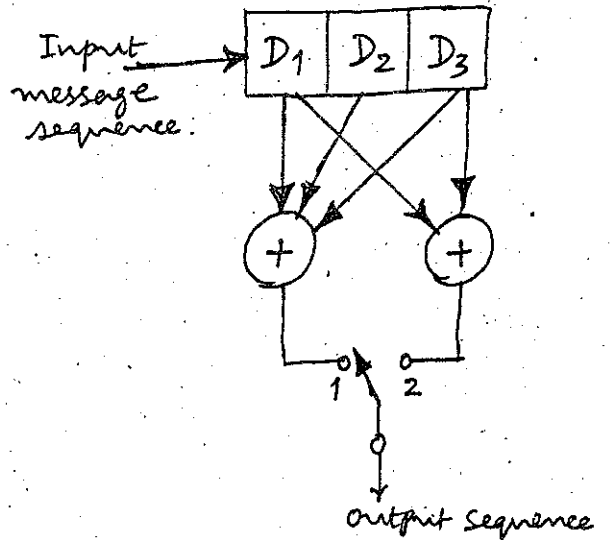 Input
message
sequence.
D1 D2 D3
+ +
1 2
output sequence